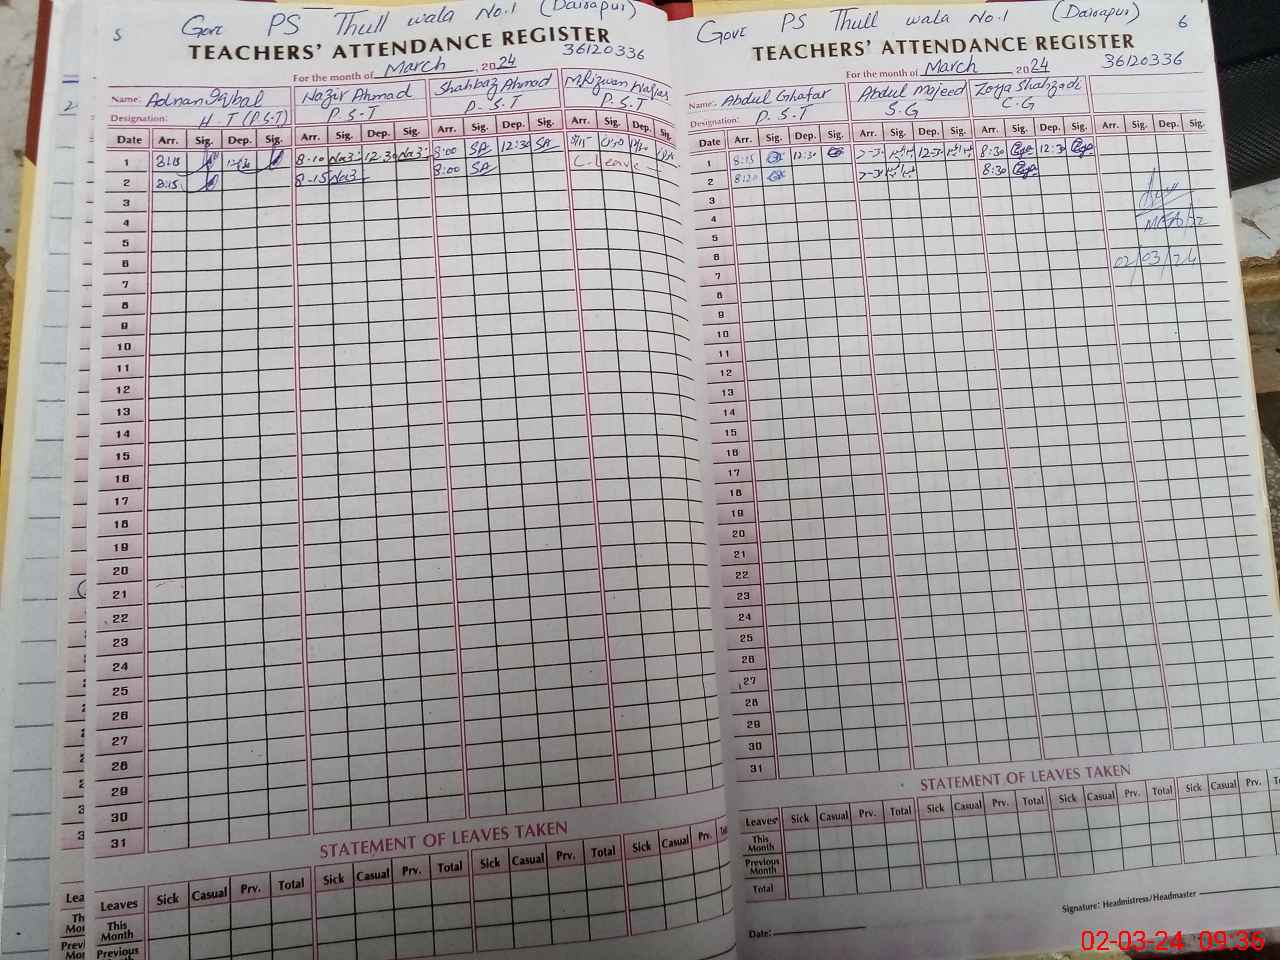 5 Govt PS Thull wala No.1 (Dairapur)
TEACHERS' ATTENDANCE REGISTER
36120336
For the month of March, 2024
Name: Adnan Iqbal Nazir Ahmad Shahbaz Ahmad M.Rizwan
Designation: H.T (P.S.T) P.S.T P.S.T P.S.T
Date Arr. Sig. Dep. Sig. Arr. Sig. Dep. Sig. Arr. Sig. Dep. Sig. Arr. Sig. Dep. Sig.
1 8:15 8-10 12:30 8:00 SA 12:30 SA
2 8:15 8-15 8:00 SA C-Leave
3
4
5
6
7
8
9
10
11
12
13
14
15
16
17
18
19
20
21
22
23
24
25
26
27
28
29
30
31
STATEMENT OF LEAVES TAKEN
Leaves Sick Casual Prv. Total Sick Casual Prv. Total Sick Casual Prv.
This Month
Previous
Govt PS Thull wala No.1 (Dairapur) 6
TEACHERS' ATTENDANCE REGISTER
36120336
For the month of March 2024
Name: Abdul Ghafar Abdul Majeed Zoya Shahzadi
Designation: P.S.T S.G C.G
Date Arr. Sig. Dep. Sig. Arr. Sig. Dep. Sig. Arr. Sig. Dep. Sig. Arr. Sig. Dep. Sig.
1 8:15 12:30 7-30 12-30 8:30 12:30
2 8:20 7-30 8:30
3
4
5
6
02/03/24
7
8
9
10
11
12
13
14
15
16
17
18
19
20
21
22
23
24
25
26
27
28
29
30
31
STATEMENT OF LEAVES TAKEN
Leaves Sick Casual Prv. Total Sick Casual Prv. Total Sick Casual Prv. Total Sick Casual Prv.
This Month
Previous Month
Total
Signature: Headmistress/Headmaster
Date:
02-03-24 09:36